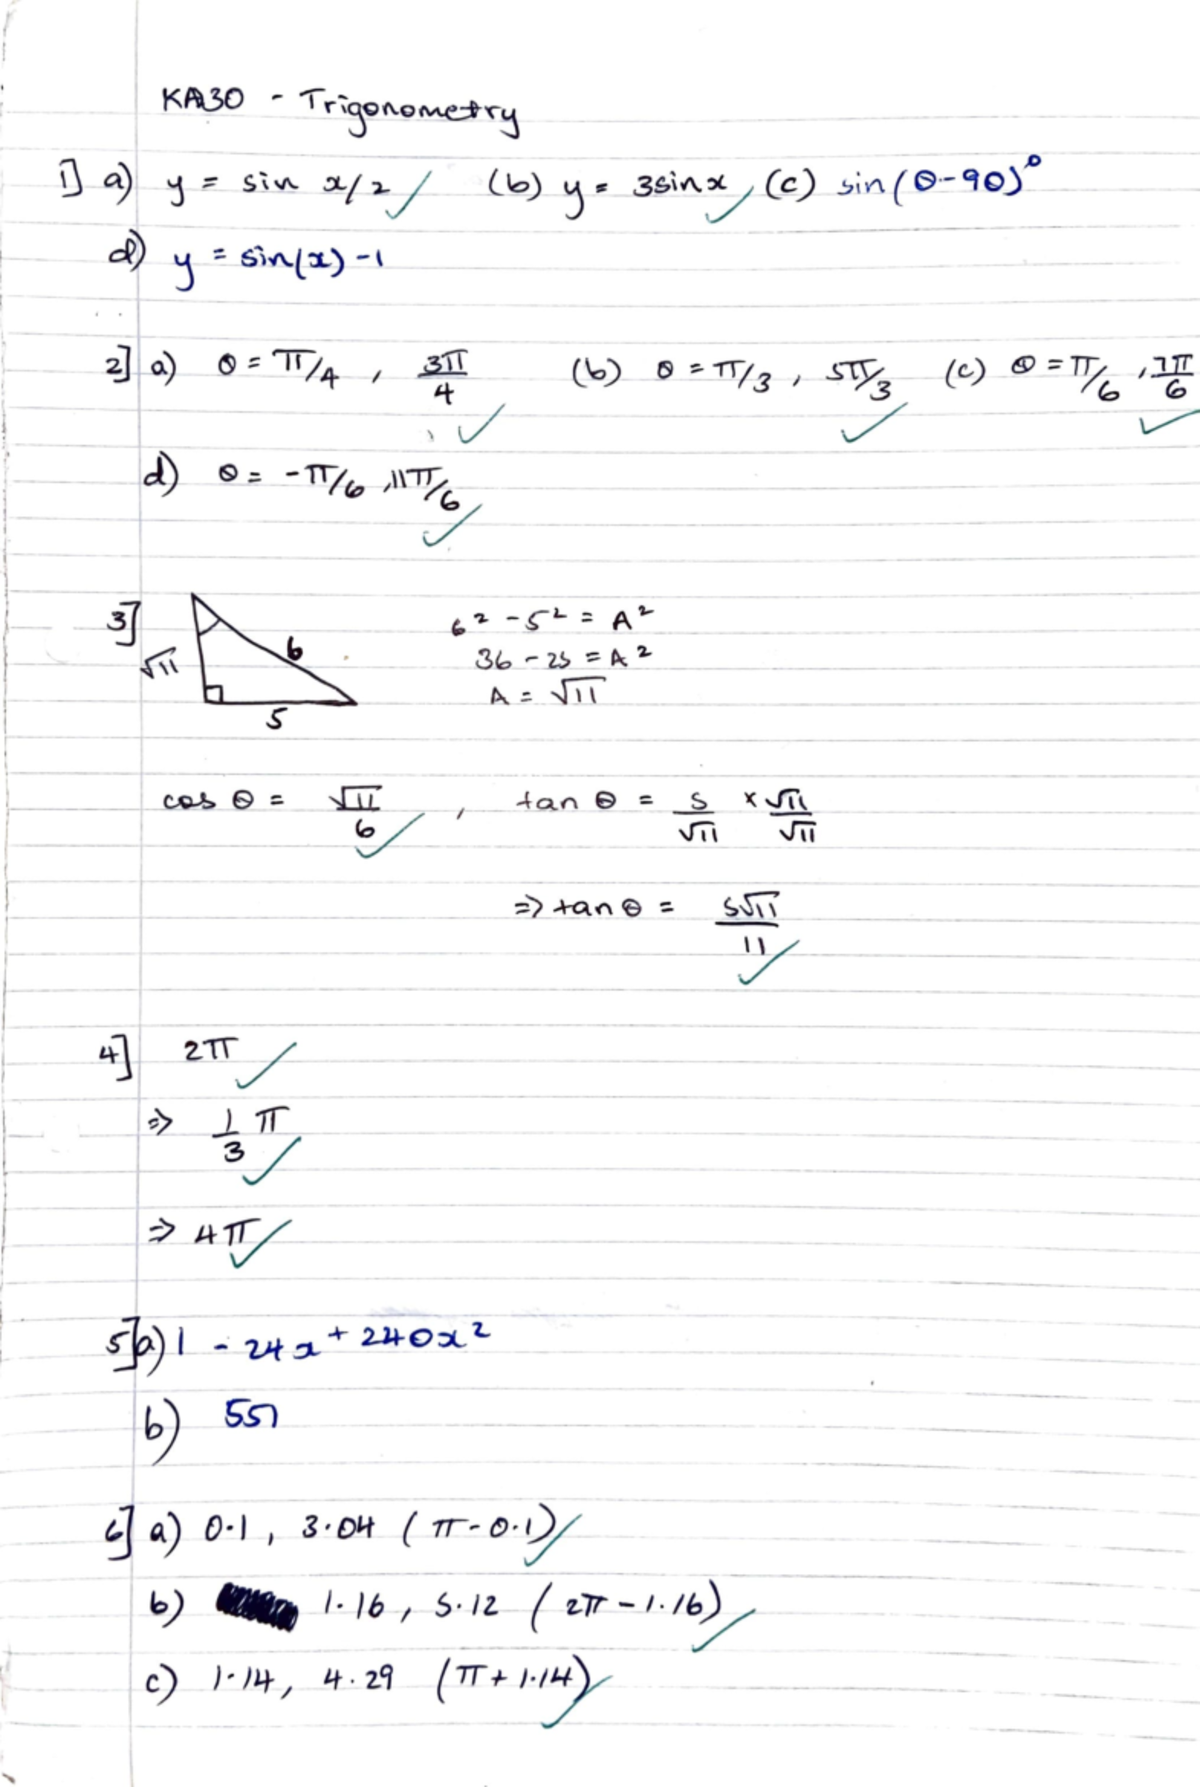 KA30 - Trigonometry
1] a) y = sin x/2 (b) y = 3sinx, (c) sin(θ-90)°
d) y = sin(x) -1
2] a) θ = π/4 , 3π/4 (b) θ = π/3 , 5π/3 (c) θ = π/6 , 7π/6
d) θ = -π/6 , 11π/6
3] √11 6 5 6² - 5² = A²
36 - 25 = A²
A = √11
cos θ = √11/6 , tan θ = 5/√11 × √11/√11
=> tan θ = 5√11/11
4] 2π
=> 1/3 π
=> 4π
5] a) 1 - 24x + 240x²
b) 557
6] a) 0.1 , 3.04 (π - 0.1)
b) 1.16 , 5.12 (2π - 1.16)
c) 1.14 , 4.29 (π + 1.14)